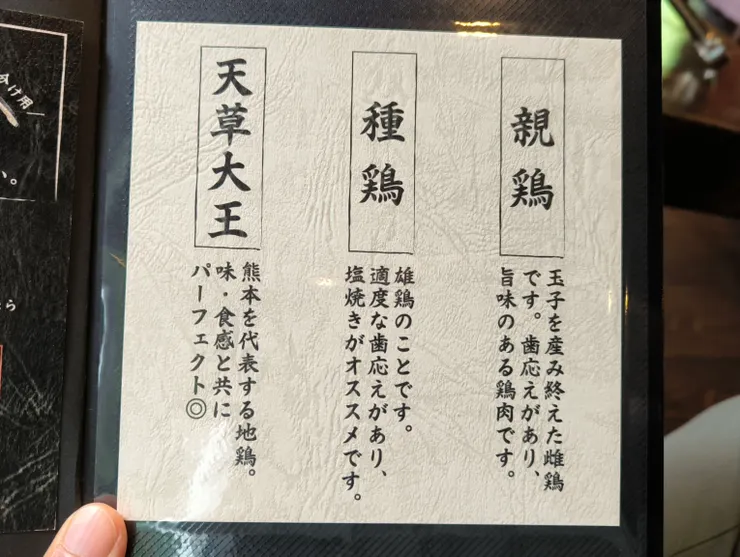 親鶏
玉子を産み終えた雌鶏
です。歯応えがあり、
旨味のある鶏肉です。
種鶏
雄鶏のことです。
適度な歯応えがあり、
塩焼きがオススメです。
天草大王
熊本を代表する地鶏。
味・食感と共に
パーフェクト◎
け用
い。
ら